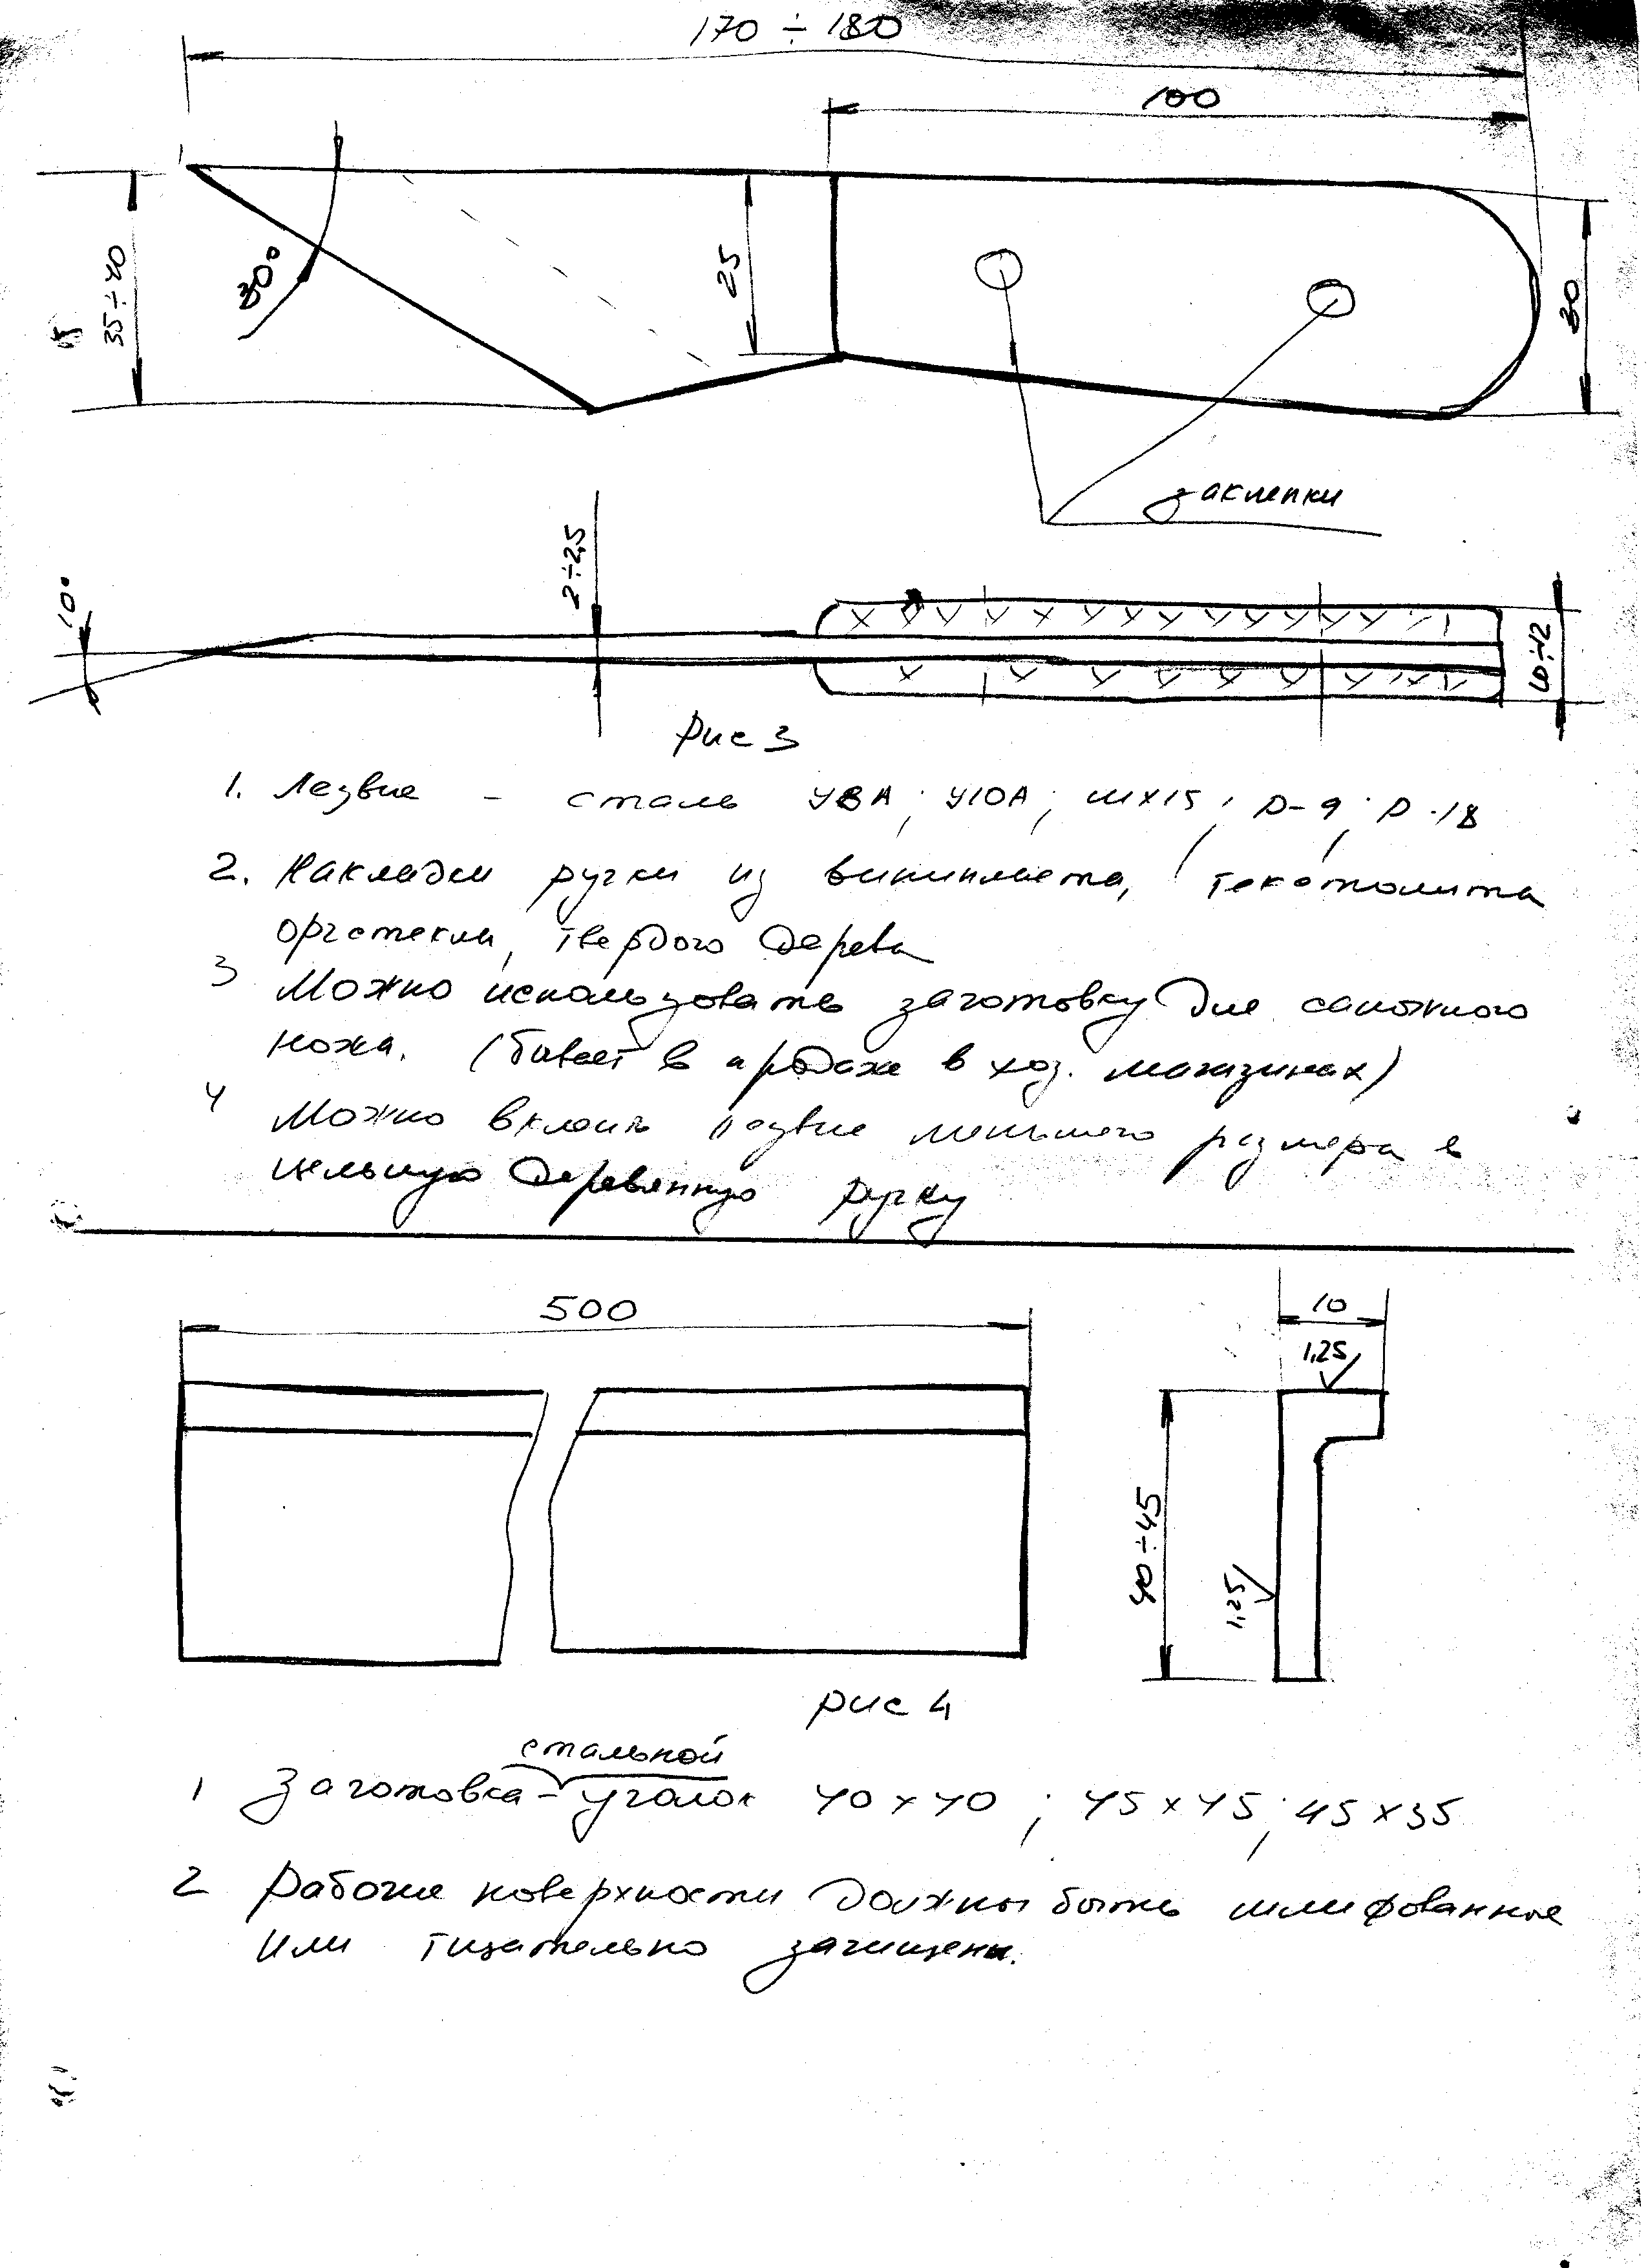 170 ÷ 180
100
35 ÷ 40
30°
25
30
заклепки
10°
2÷2,5
10÷12
Рис 3
1. Лезвие - сталь У8А; У10А; ШХ15; Р-9; Р-18
2. Накладки ручки из винипласта, текстолита
оргстекла, твердого дерева
3 Можно использовать заготовку для сапожного
ножа. (бывает в продаже в хоз. магазинах)
4 Можно вклеить лезвие меньшего размера в
цельную деревянную ручку
500
10
1,25
40÷45
1,25
Рис 4
стальной
1 Заготовка - уголок 40х40; 45х45; 45х35
2 Рабочие поверхности должны быть шлифованные
или тщательно зачищены.